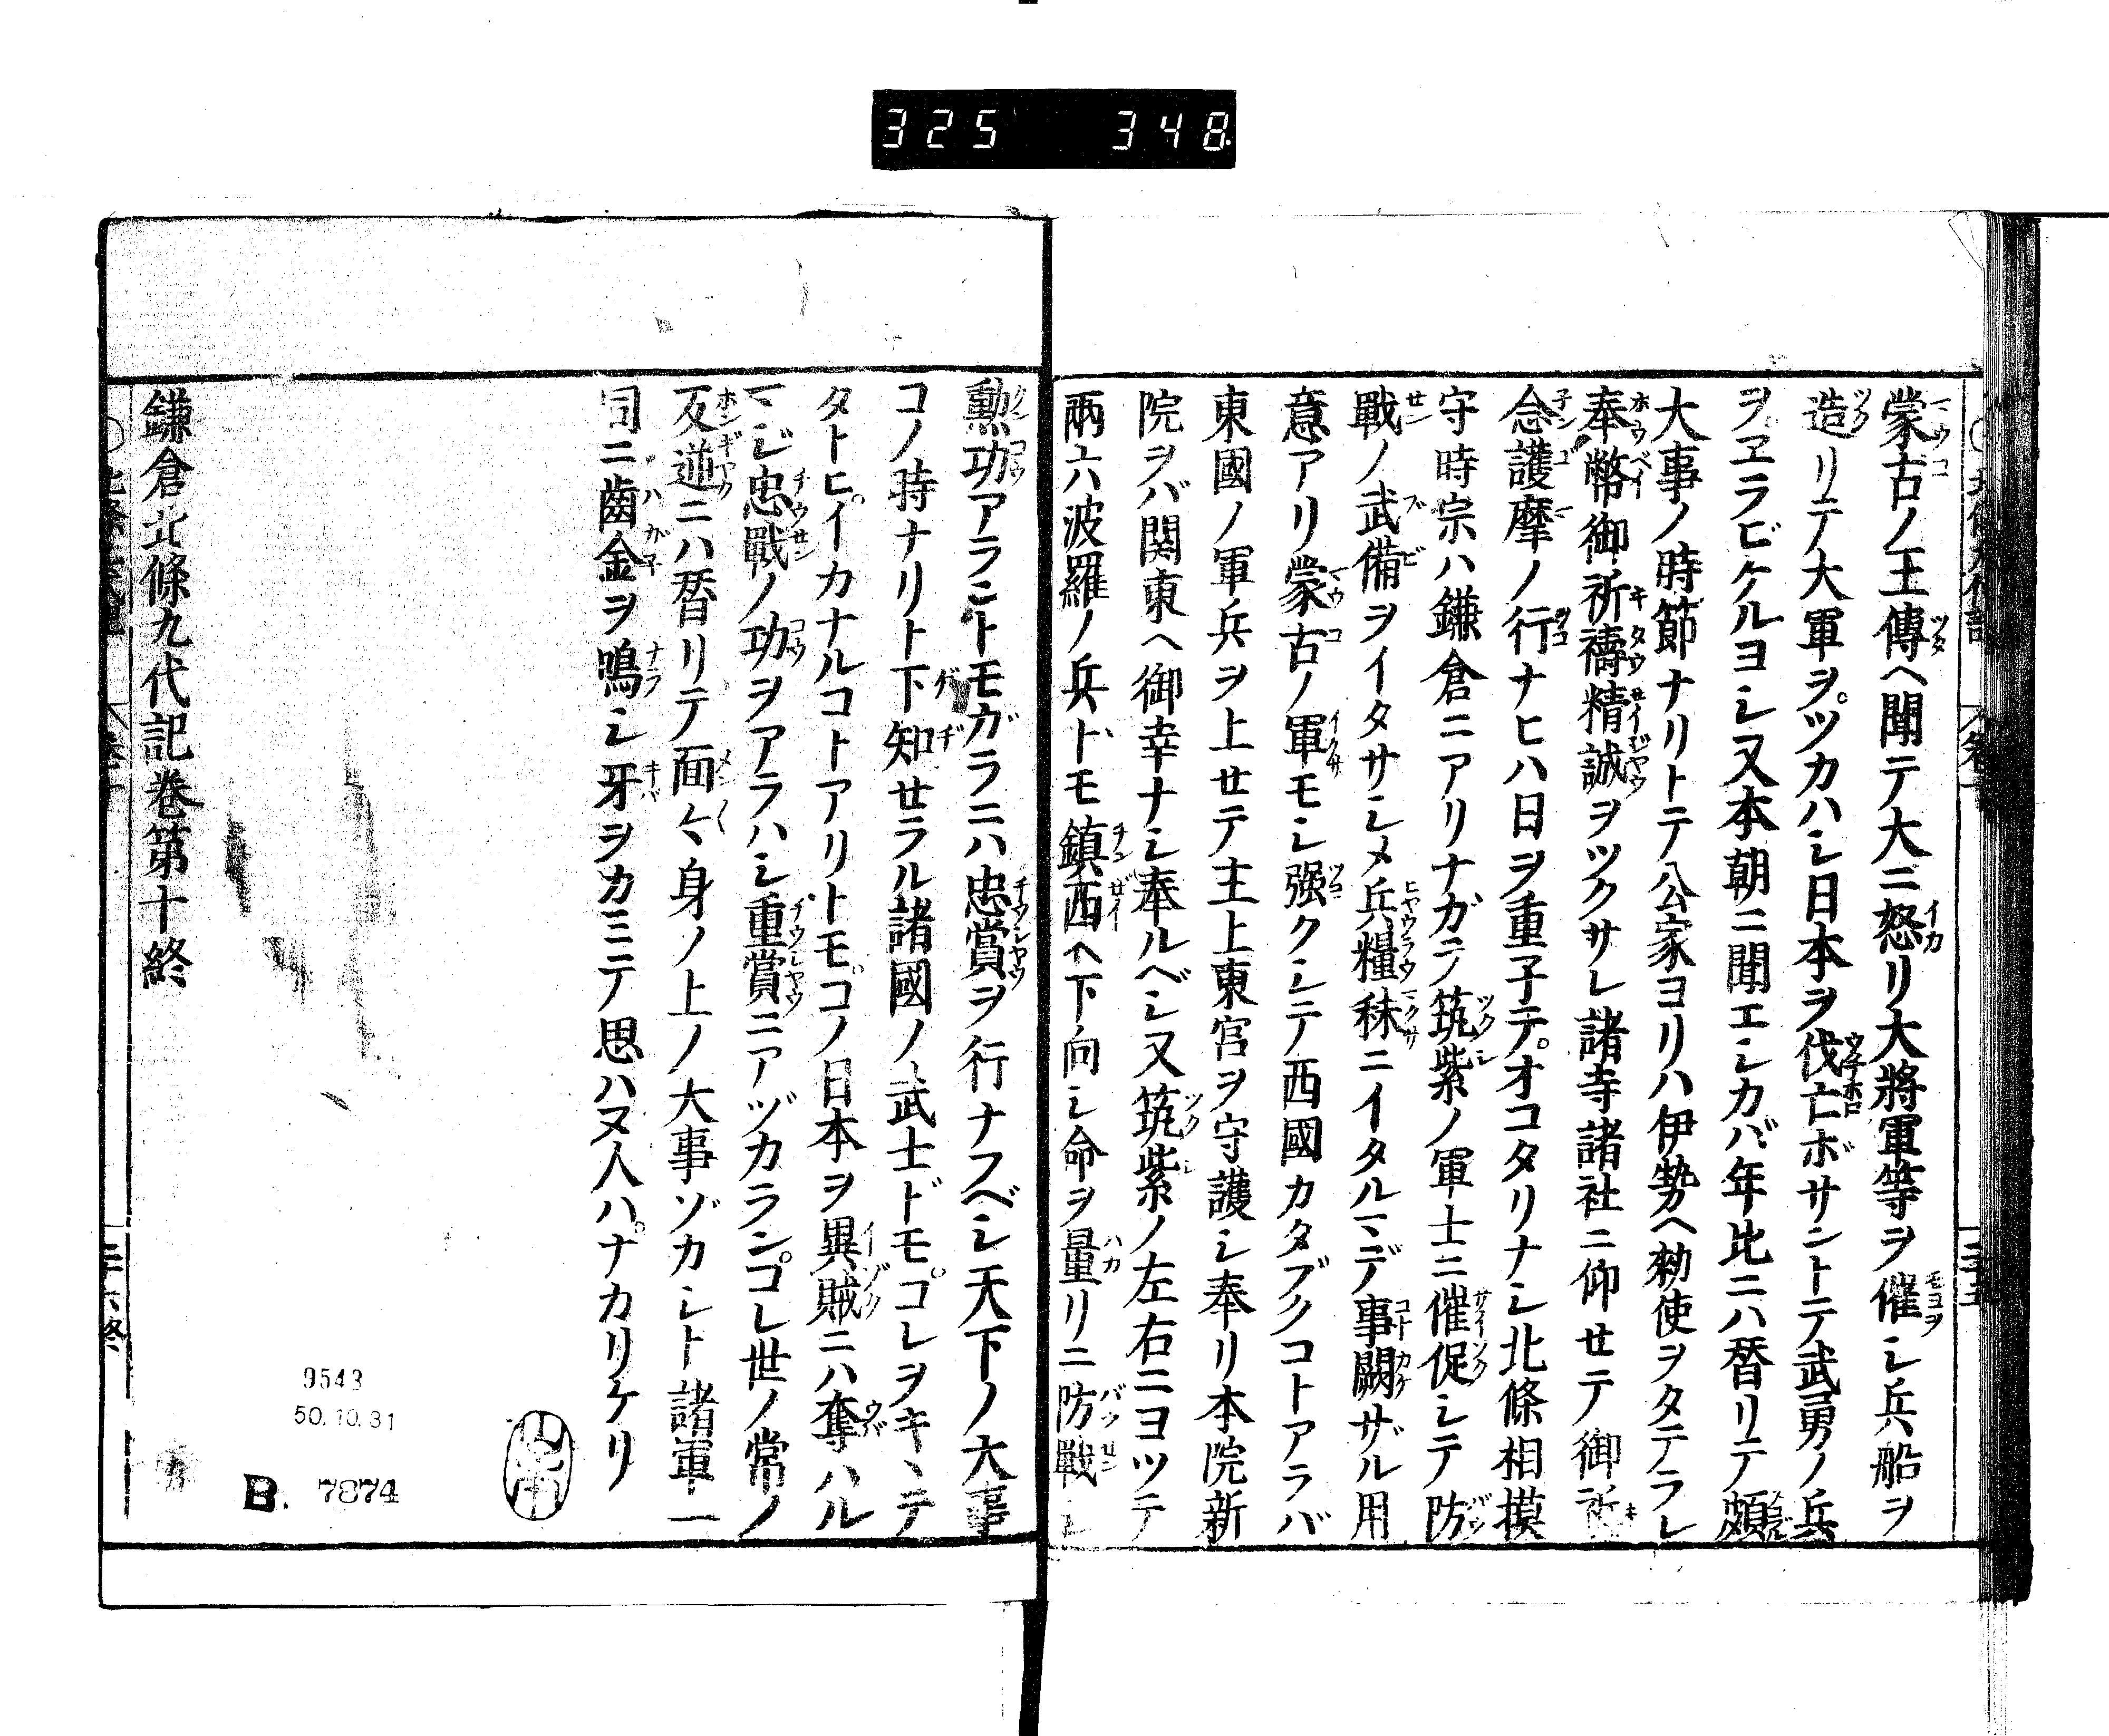 325 348
蒙古ノ王傳ヘ聞テ大ニ怒リ大將軍等ヲ催シ兵船ヲ
造リテ大軍ヲツカハシ日本ヲ伐亡ボサントテ武勇ノ兵
ヲヱラビケルヨシ又本朝ニ聞エシカバ年比ニハ替リテ頗
大事ノ時節ナリトテ公家ヨリハ伊勢ヘ勅使ヲタテラレ
奉幣御祈禱精誠ヲツクサレ諸寺諸社ニ仰セテ御祈
念護摩ノ行ナヒハ日ヲ重子テオコタリナシ北條相摸
守時宗ハ鎌倉ニアリナガラ筑紫ノ軍士ニ催促シテ防
戰ノ武備ヲイタサシメ兵糧秣ニイタルマデ事闕ザル用
意アリ蒙古ノ軍モシ强クシテ西國カタブクコトアラバ
東國ノ軍兵ヲ上セテ主上東宮ヲ守護シ奉リ本院新
院ヲバ関東ヘ御幸ナシ奉ルベシ又筑紫ノ左右ニヨツテ
兩六波羅ノ兵ドモ鎮西ヘ下向シ命ヲ量リニ防戰シ
勳功アラントモガラニハ忠賞ヲ行ナフベシ天下ノ大事
コノ時ナリト下知セラル諸國ノ武士ドモコレヲキヽテ
タトヒイカナルコトアリトモコノ日本ヲ異賊ニハ奪ハル
マジ忠戰ノ功ヲアラハシ重賞ニアヅカランコレ世ノ常ノ
反逆ニハ替リテ面々身ノ上ノ大事ゾカシト諸軍一
同ニ齒金ヲ鳴シ牙ヲカミテ思ハヌ人ハナカリケリ
鎌倉北條九代記巻第十終
9543
50.10.31
B. 7874